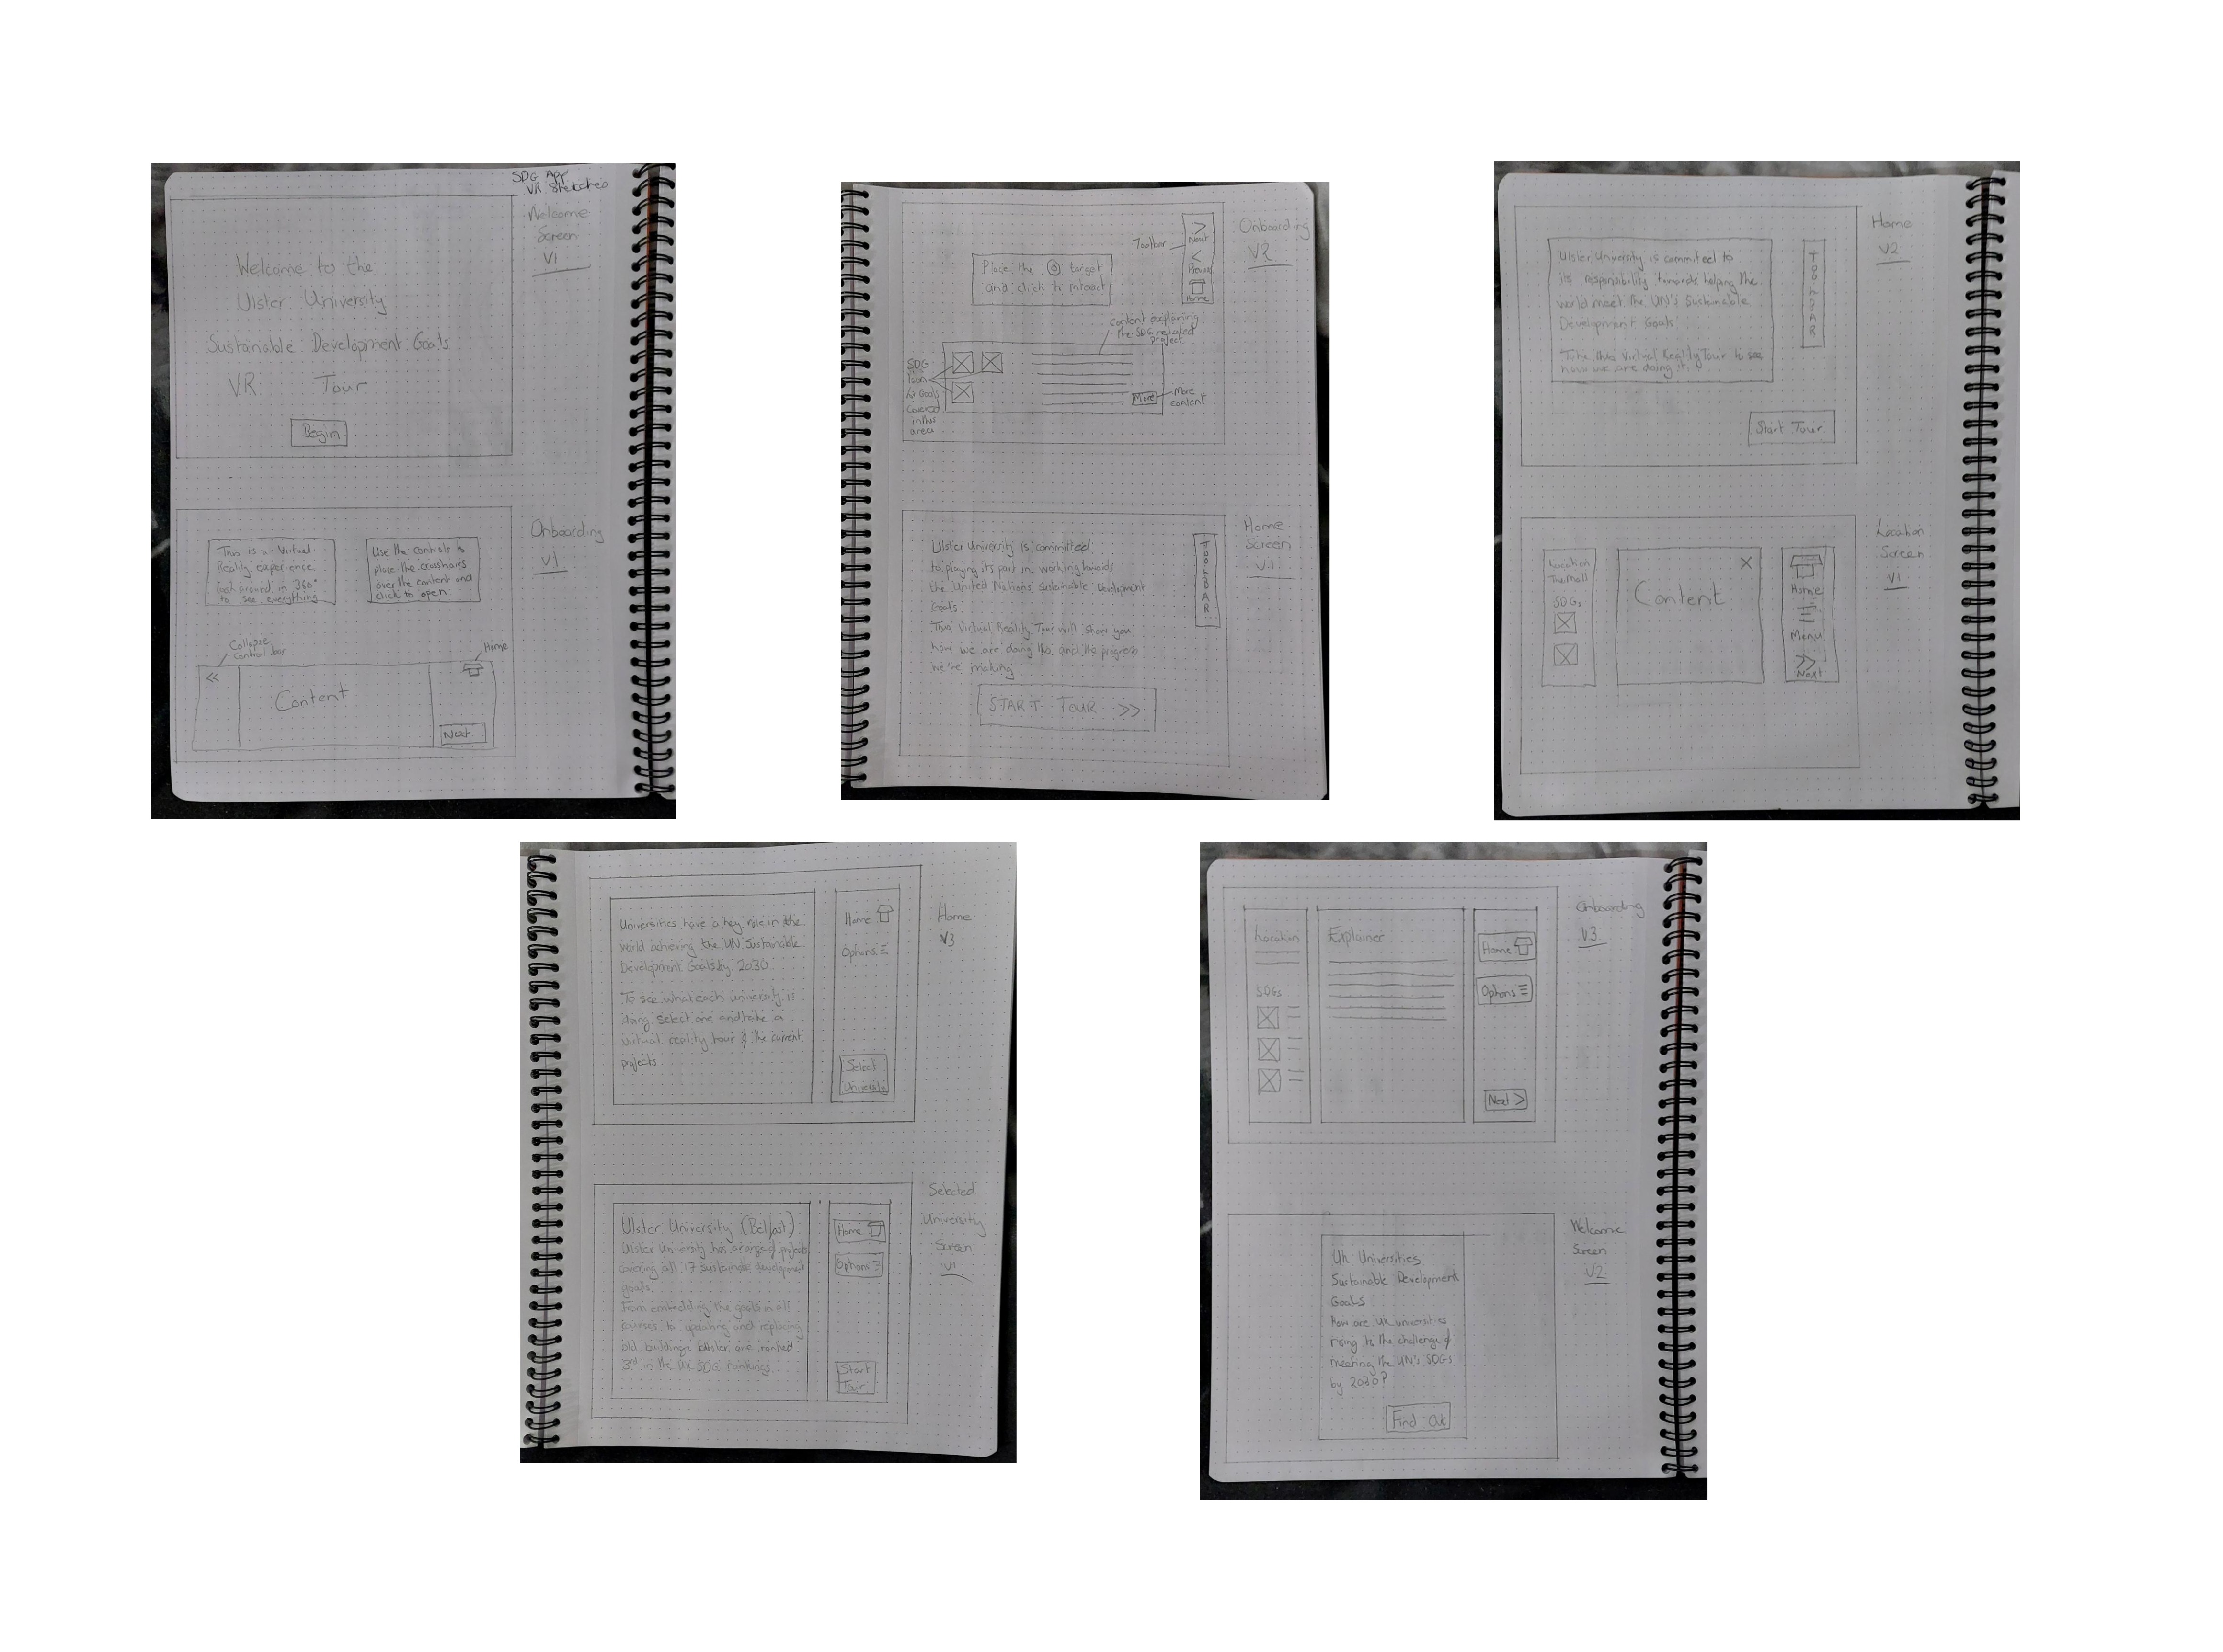 SDG App
VR Sketches
Welcome
Screen
V1
Welcome to the
Ulster University
Sustainable Development Goals
VR Tour
Begin
Onboarding
V1
This is a Virtual
Reality experience
look around in 360°
to see everything
Use the controls to
place the crosshairs
over the content and
click to open
Collapse
Control bar
Home
<<
Content
Next
Onboarding
V2
Toolbar
>
Next
<
Previous
Home
Place the target
and click to interact
Content explaining
the SDG related
project
SDG
Icon
for Goals
Covered
in this
area
More
More
content
Home
Screen
V.1
Ulster University is committed
to playing its part in working towards
the United Nations Sustainable Development
Goals.
This Virtual Reality Tour will show you
how we are doing this and the progress
we're making
TOOLBAR
START TOUR >>
Home
V2
Ulster University is commited to
its responsibility towards helping the
world meet the UN's Sustainable
Development Goals
Take this Virtual Reality Tour to see
how we are doing it.
TOOLBAR
Start Tour
Location
Screen
V1
Location
The Mall
SDGs
Content
X
Home
Menu
>>
Next
Home
V3
Universities have a key role in the
world achieving the UN Sustainable
Development Goals by 2030
To see what each university is
doing select one and take a
virtual reality tour of the current
projects
Home
Options
Select
University
Selected
University
Screen
V1
Ulster University (Belfast)
Ulster University has a range of projects
covering all 17 sustainable development
goals.
From embedding the goals in all
courses to updating and replacing
old buildings Ulster are ranked
3rd in the UK SDG rankings
Home
Options
Start
Tour
Onboarding
V3
Location
SDGs
Explainer
Home
Options
Next >
Welcome
Screen
V2
UK Universities
Sustainable Development
Goals
How are UK universities
rising to the challenge of
meeting the UN's SDGs
by 2030?
Find Out